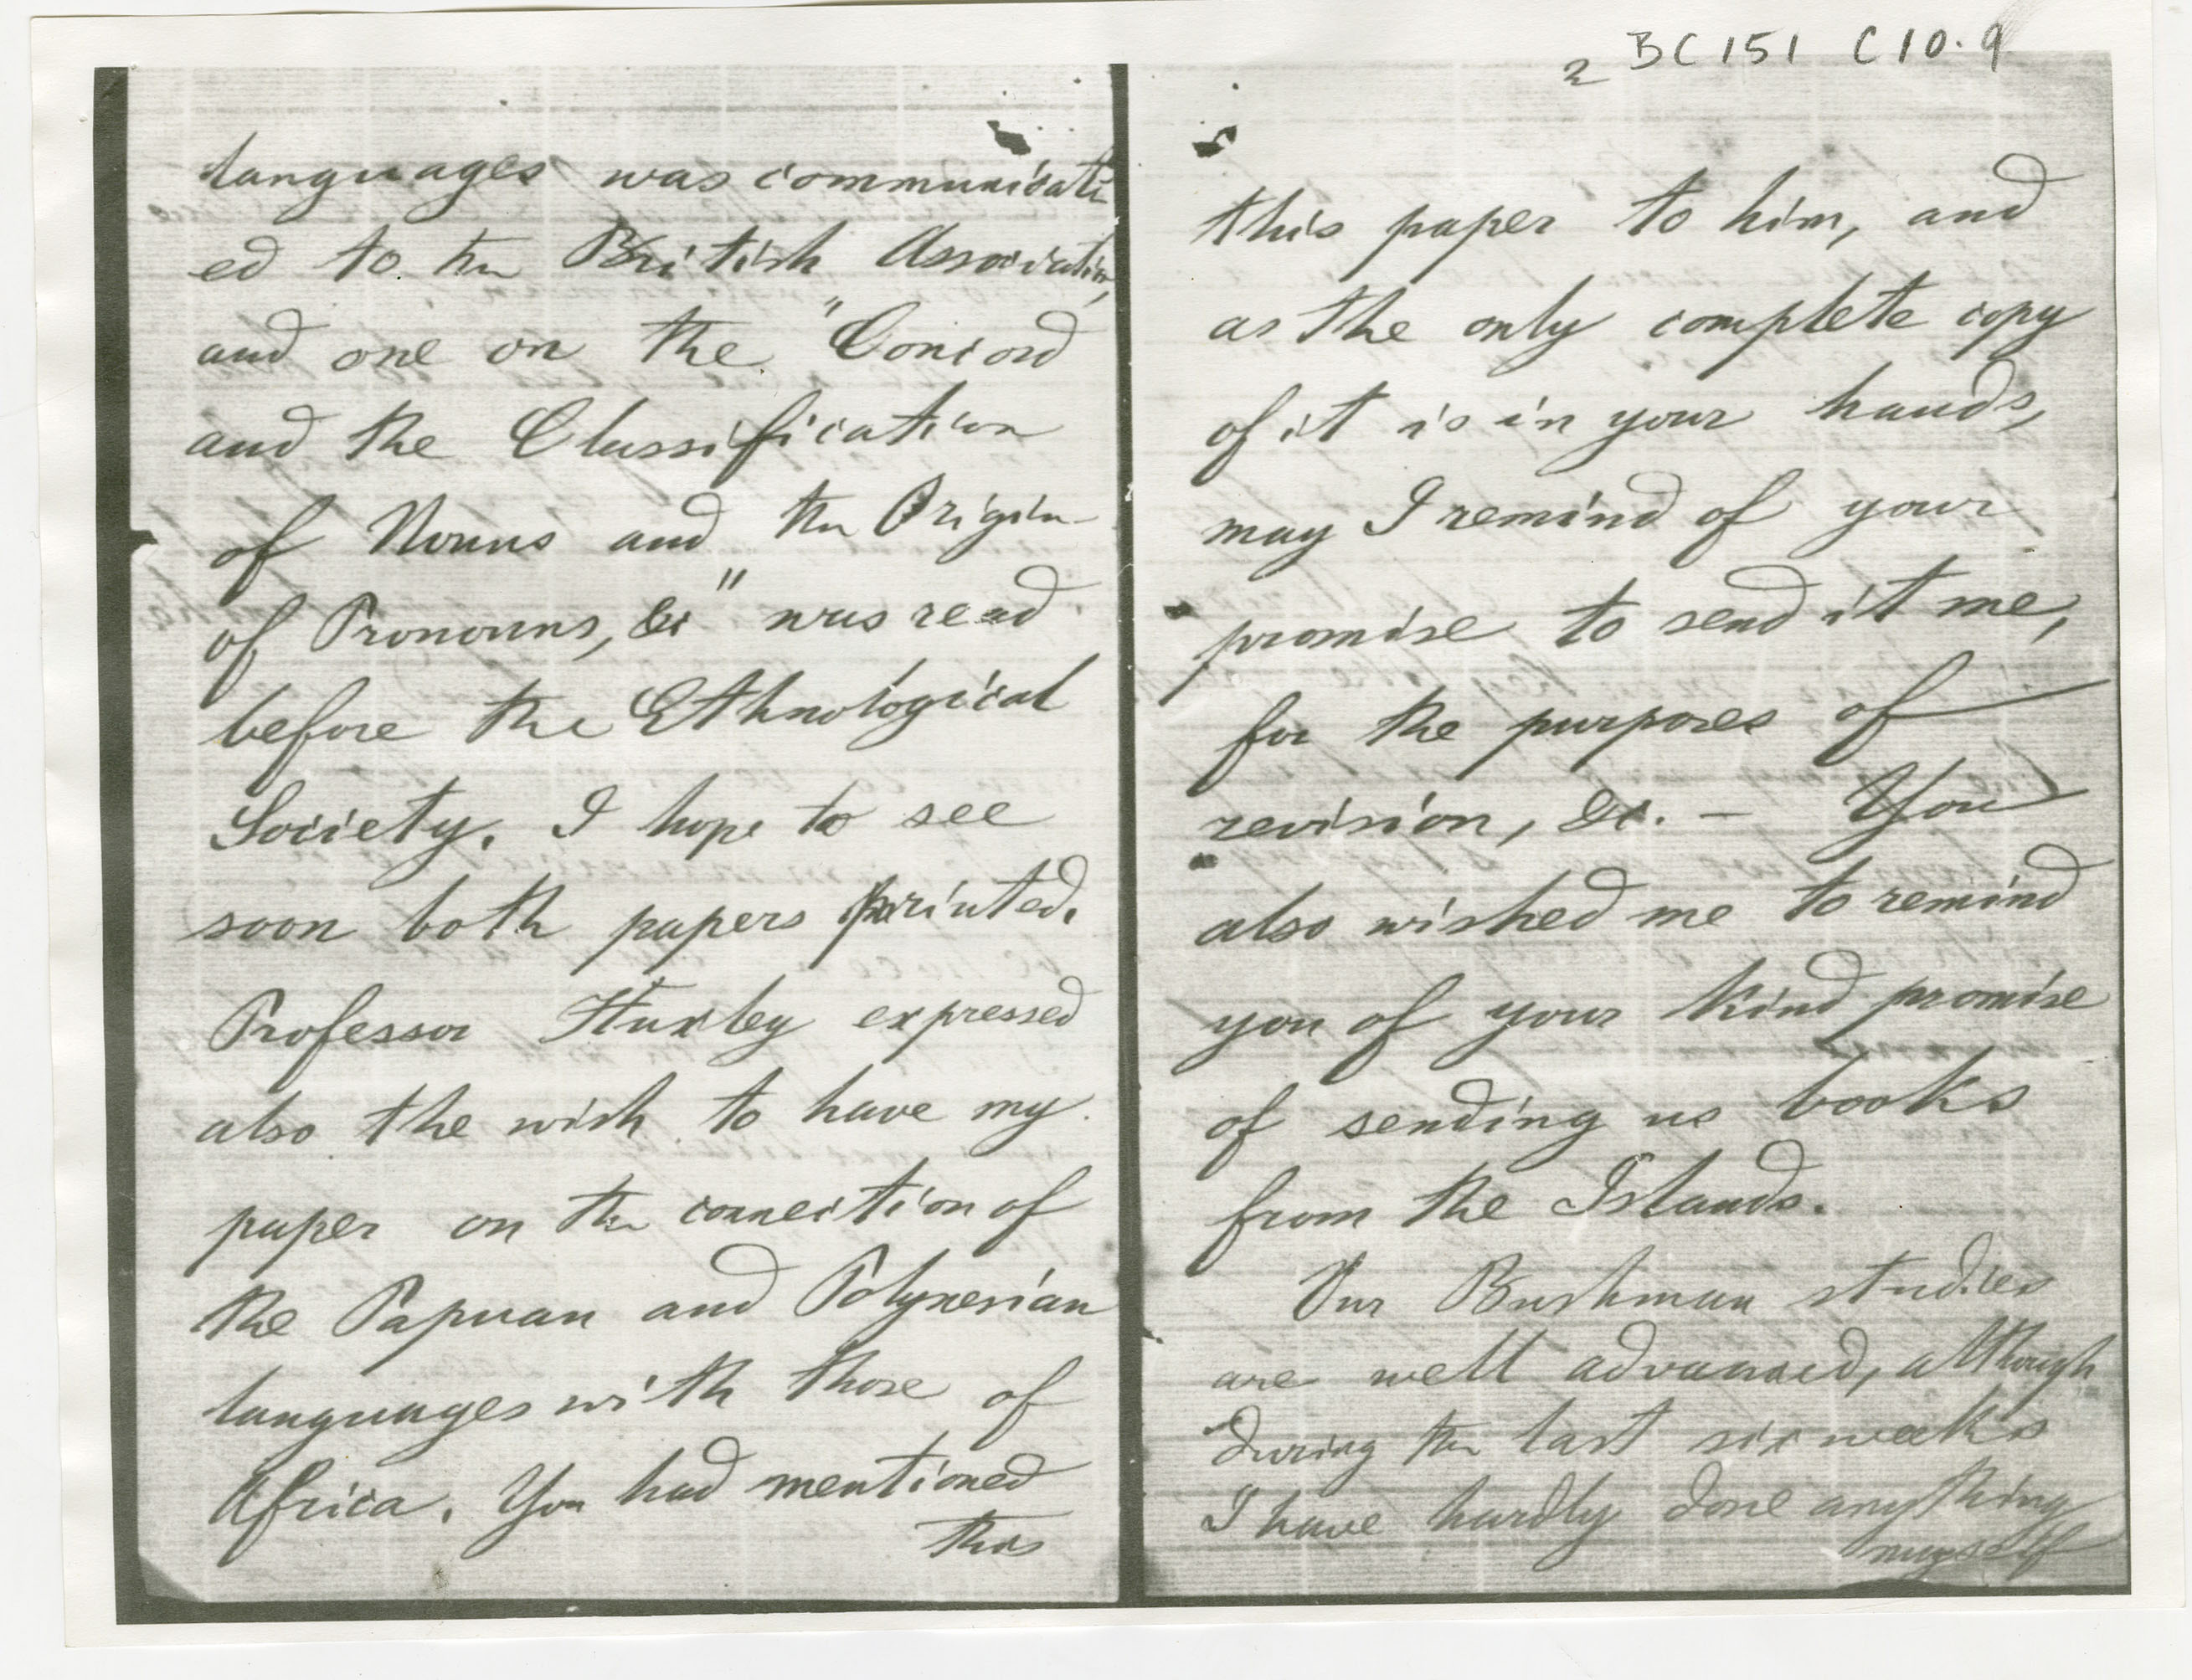 2 BC151 C10.9
languages was communicati
ed to the British Association,
and one on the "Concord
and the Classification
of Nouns and the Origin
of Pronouns, &c" was read
before the Ethnological
Society. I hope to see
soon both papers printed.
Professor Huxley expressed
also the wish to have my
paper on the connection of
the Papuan and Polynesian
languages with those of
Africa. You had mentioned
this
this paper to him, and
as the only complete copy
of it is in your hands,
may I remind of your
promise to send it me,
for the purposes of
revision, &c. — You
also wished me to remind
you of your kind promise
of sending us books
from the Islands.
Our Bushman studies
are well advanced, although
during the last six weeks
I have hardly done anything
myself